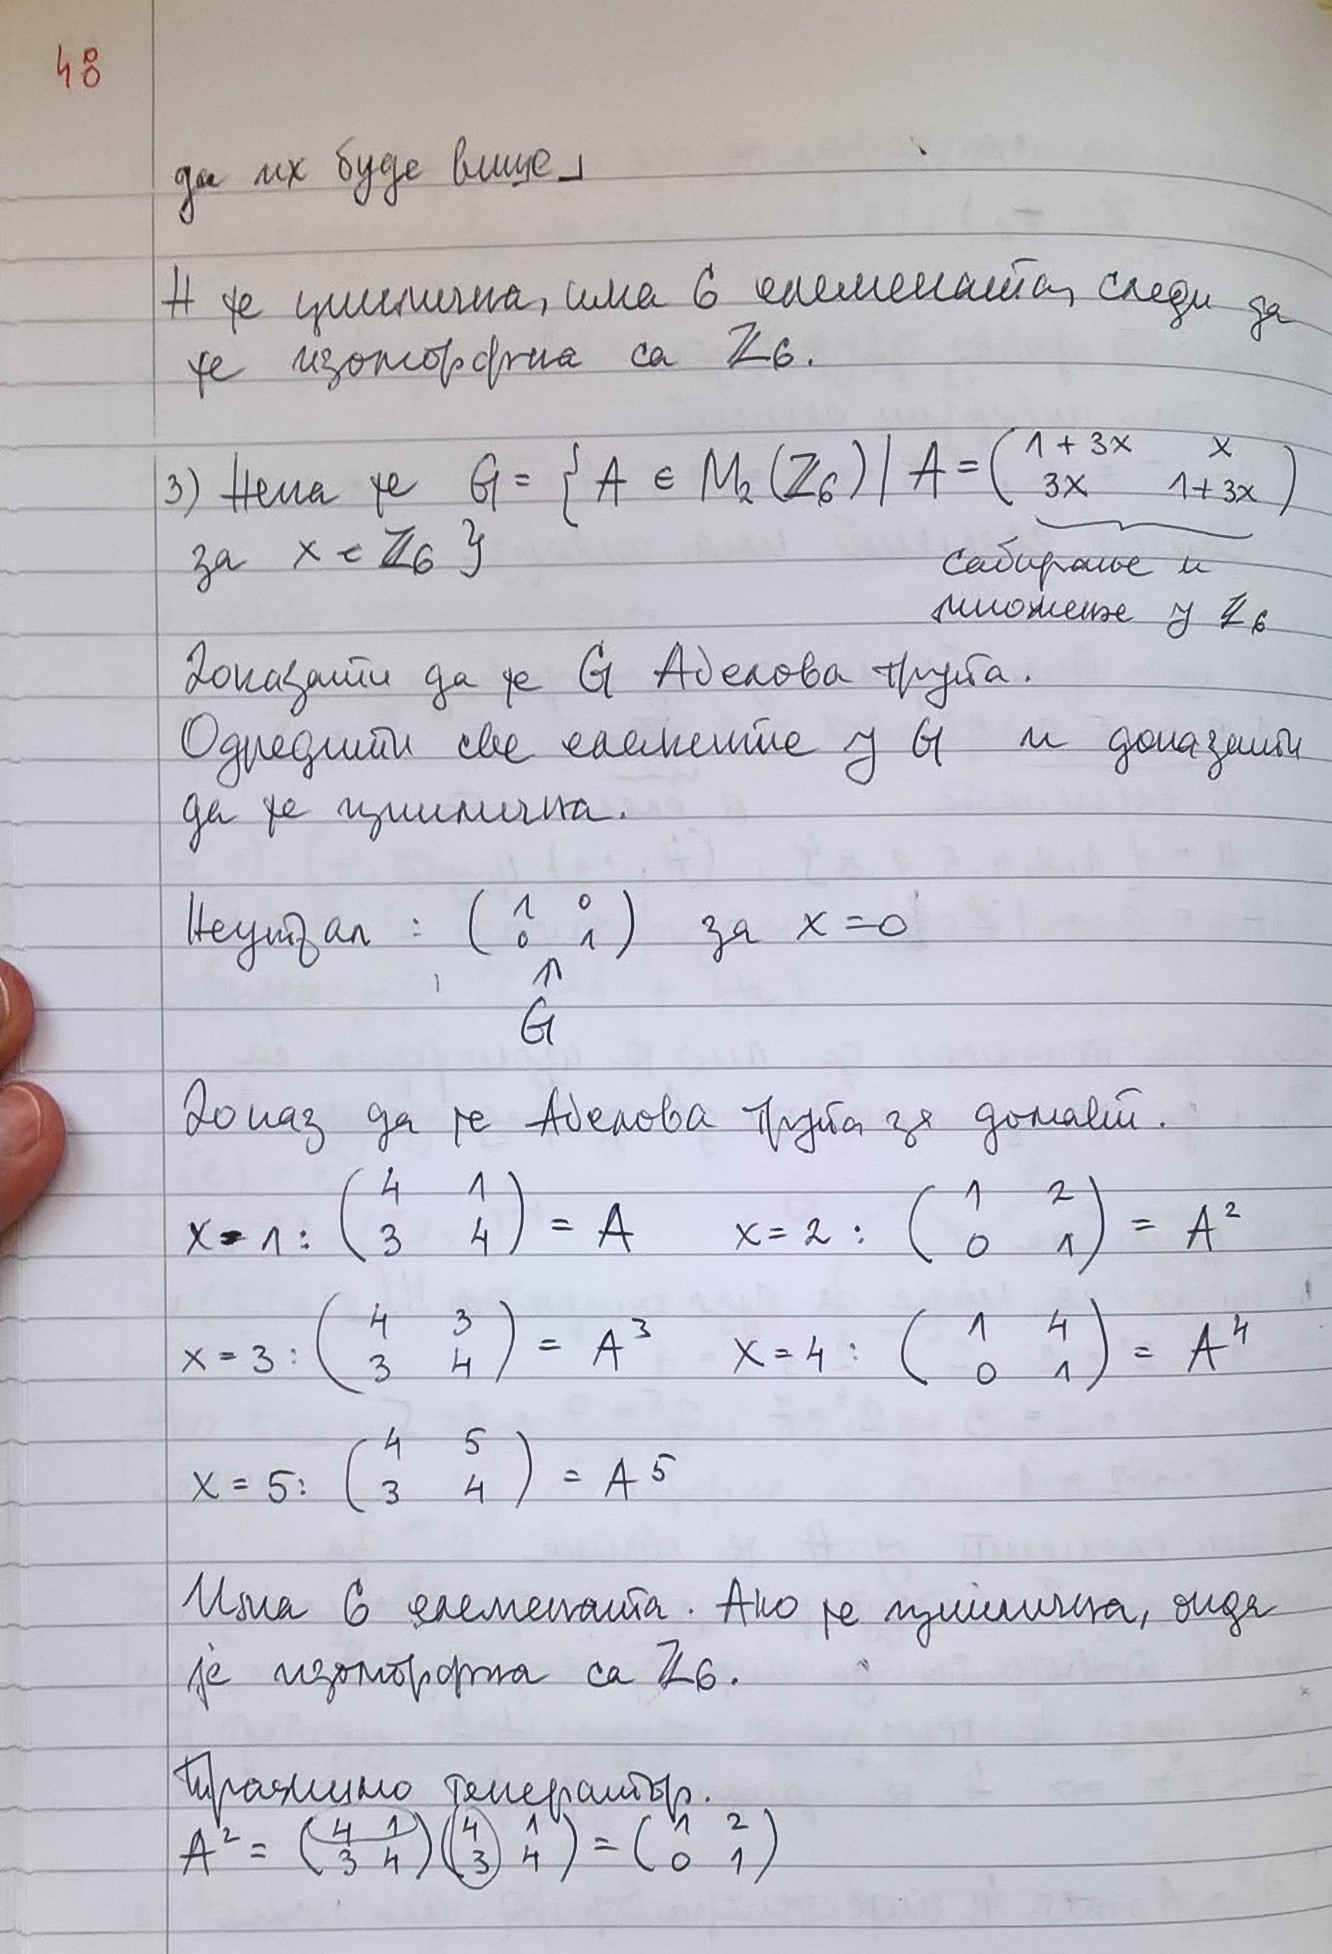 48
да их буде више」
H је циклична, има 6 елемената, следи да
је изоморфна са ℤ6.
3) Нека је G = { A ∈ M2 (ℤ6) | A = ( 1+3x x
3x 1+3x )
за x ∈ ℤ6 }
сабирање и
множење у ℤ6
Доказати да је G Абелова група.
Одредити све елементе у G и доказати
да је циклична.
Неутрал : ( 1 0
0 1 ) за x = 0
G
Доказ да је Абелова група за домаћи.
x = 1 : ( 4 1
3 4 ) = A x = 2 : ( 1 2
0 1 ) = A²
x = 3 : ( 4 3
3 4 ) = A³ x = 4 : ( 1 4
0 1 ) = A⁴
x = 5 : ( 4 5
3 4 ) = A⁵
Има 6 елемената. Ако је циклична, онда
је изоморфна са ℤ6.
Тражимо генератор.
A² = ( 4 1
3 4 ) ( 4 1
3 4 ) = ( 1 2
0 1 )